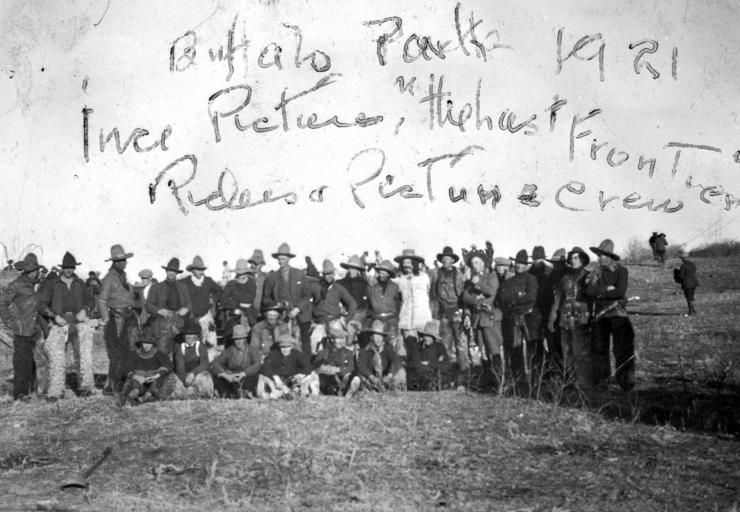 Buffalo Park 1921
Ince Picture, "The Last Frontier"
Riders & Picture Crew